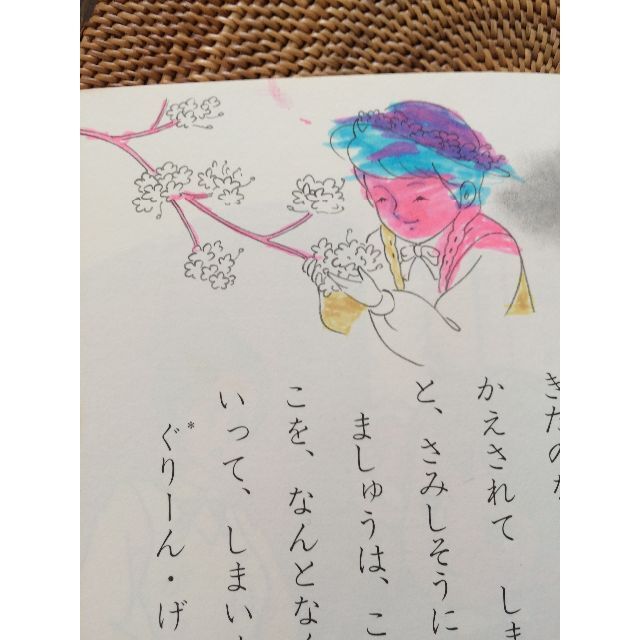 きたのな
かえされて　しま
と、さみしそうに
ましゅうは、こ
こを、なんとなく
いって、しまい
*ぐりーん・げ